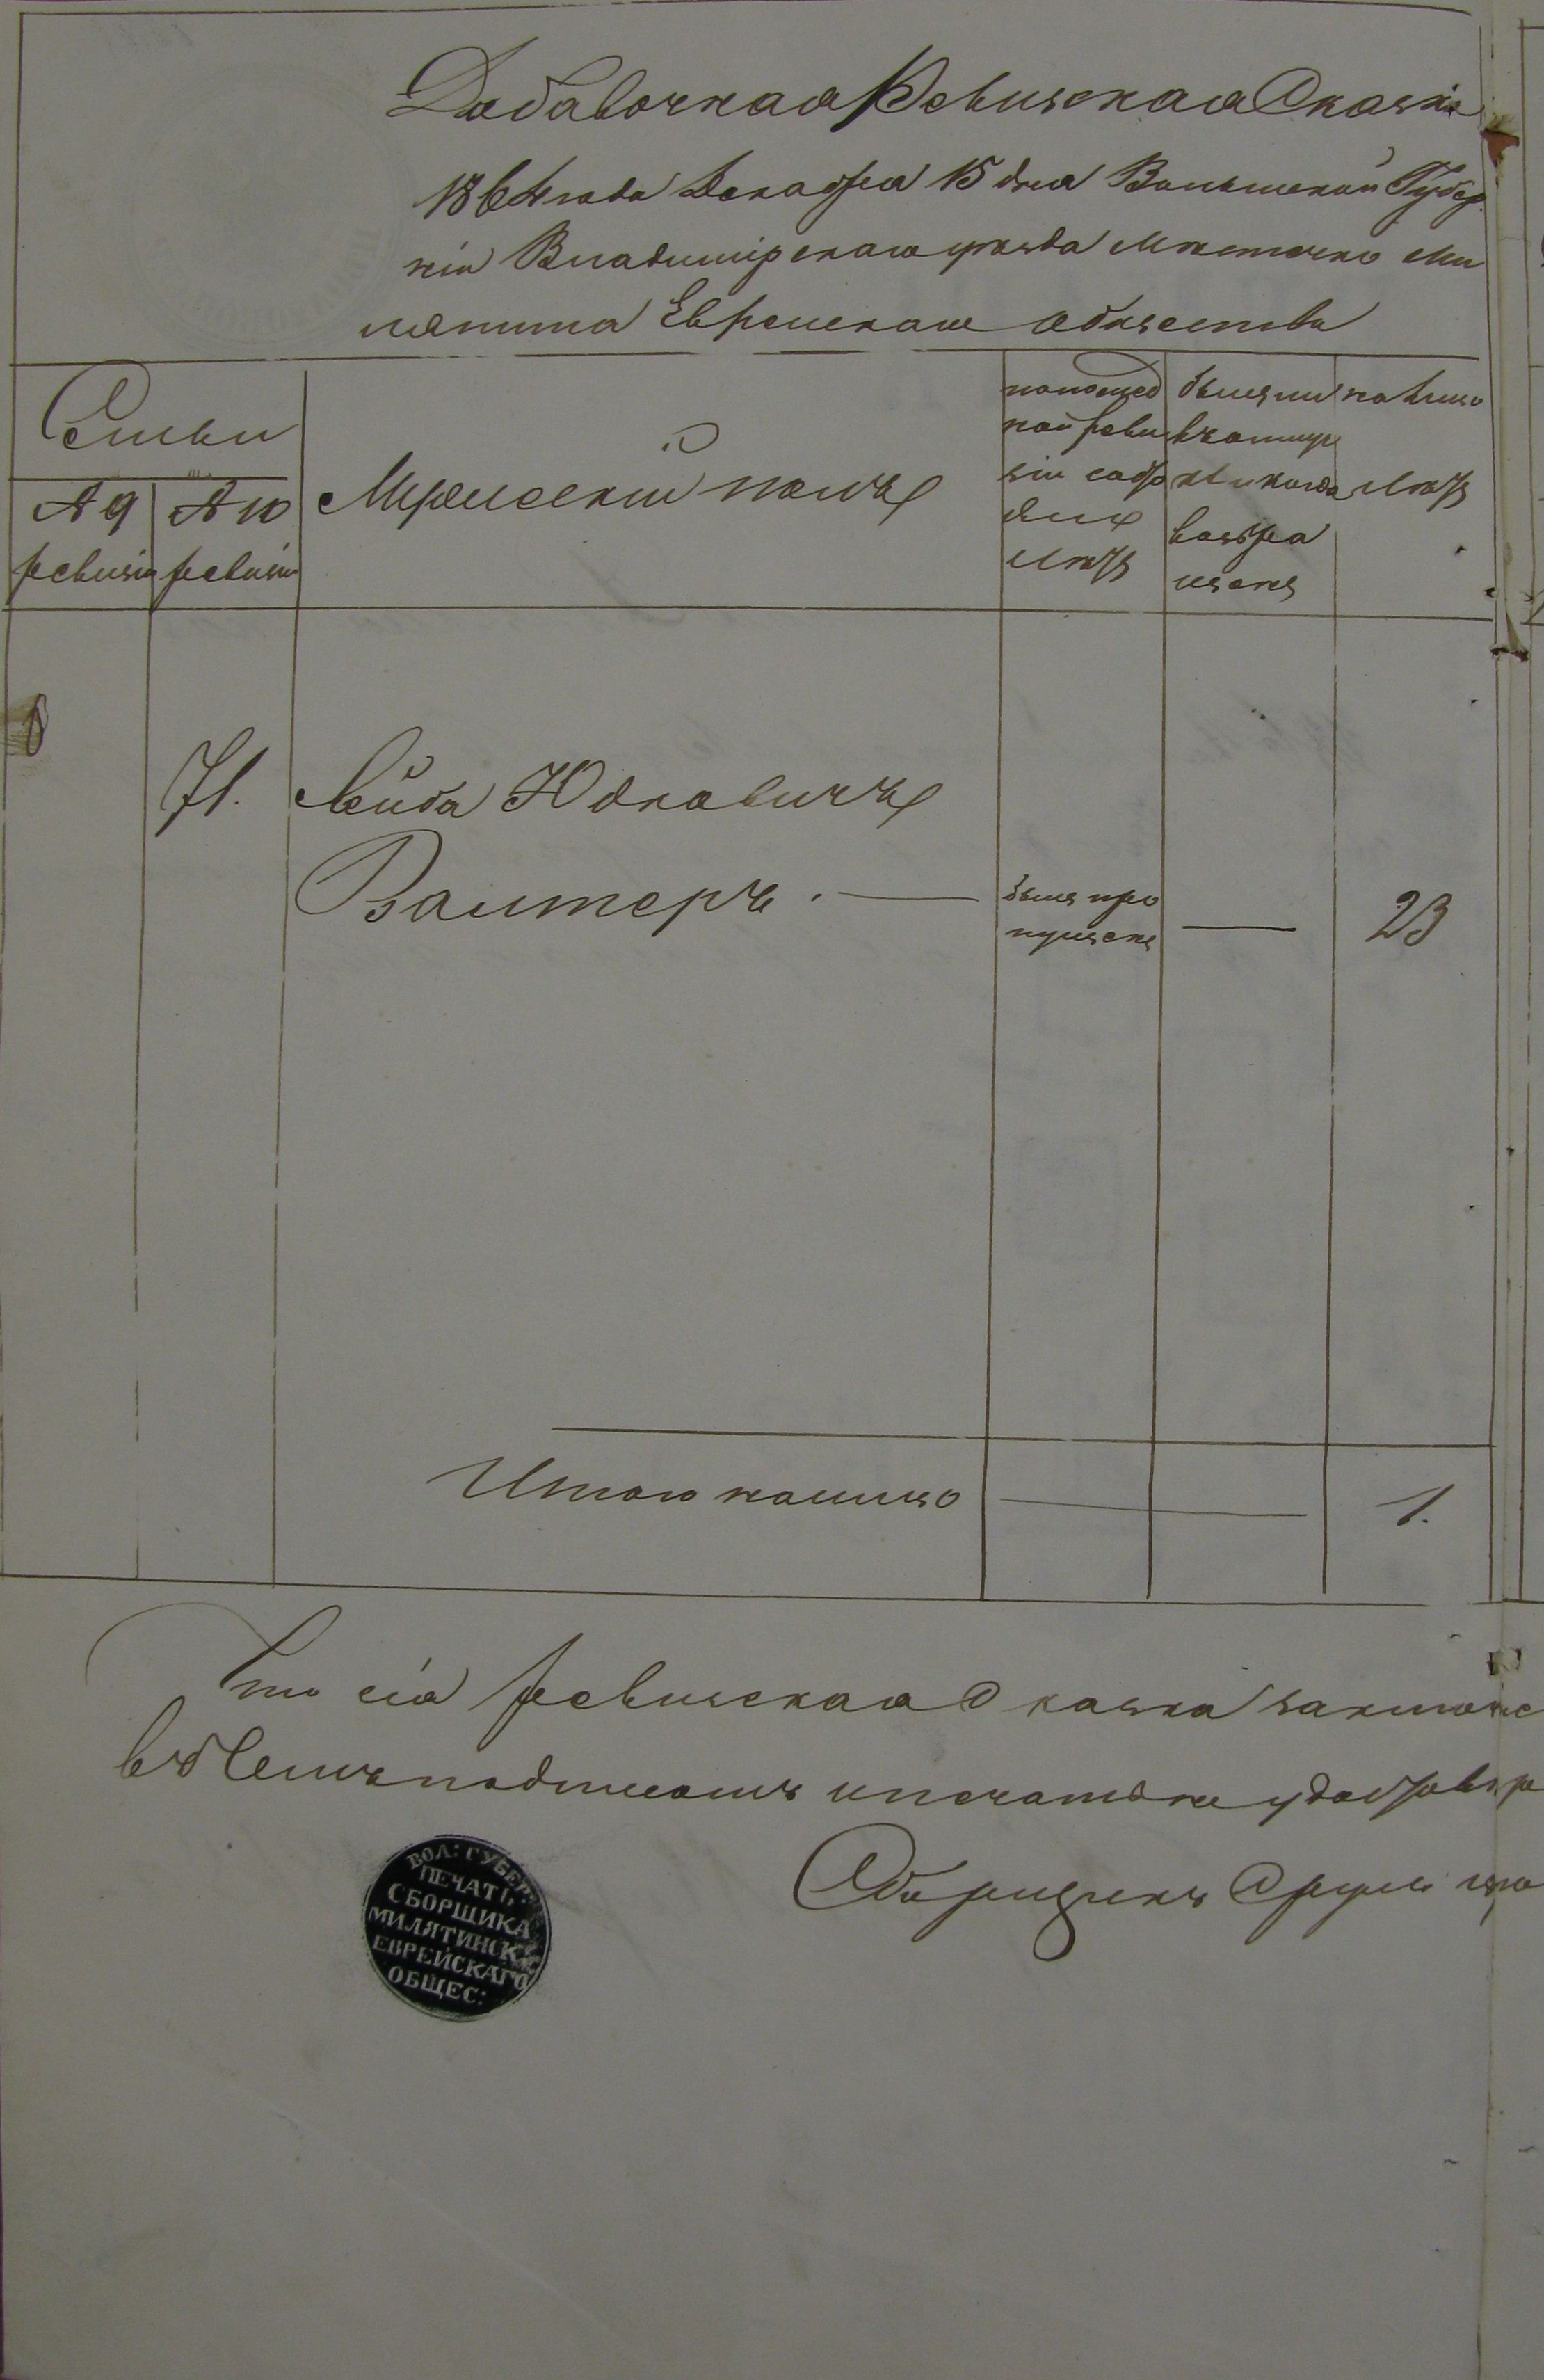 Добавочная Ревизская Сказка
1864 года Декабря 15 дня Волынской Губер
ніи Владимірскаго уѣзда Мѣстечко Ми
лятина Еврейскаго Общества
Семьи
№ 9 ревизіи
№ 10 ревизіи
Мужескій полъ
по послед
ней реви
зіи состо
ялъ
лѣтъ
былъ ли
въ отлуч
кѣ и когда
возвра
щенъ
на лицо
лѣтъ
71. Лейба Юдковичъ
Валтеръ. былъ про 23
пущенъ
Итого налицо 1.
Что сія ревизская сказка
въ Семъ подписомъ и печатью
Сборщикъ
ВОЛ: ГУБЕР:
ПЕЧАТЬ
СБОРЩИКА
МИЛЯТИНСК:
ЕВРЕЙСКАГО
ОБЩЕС: